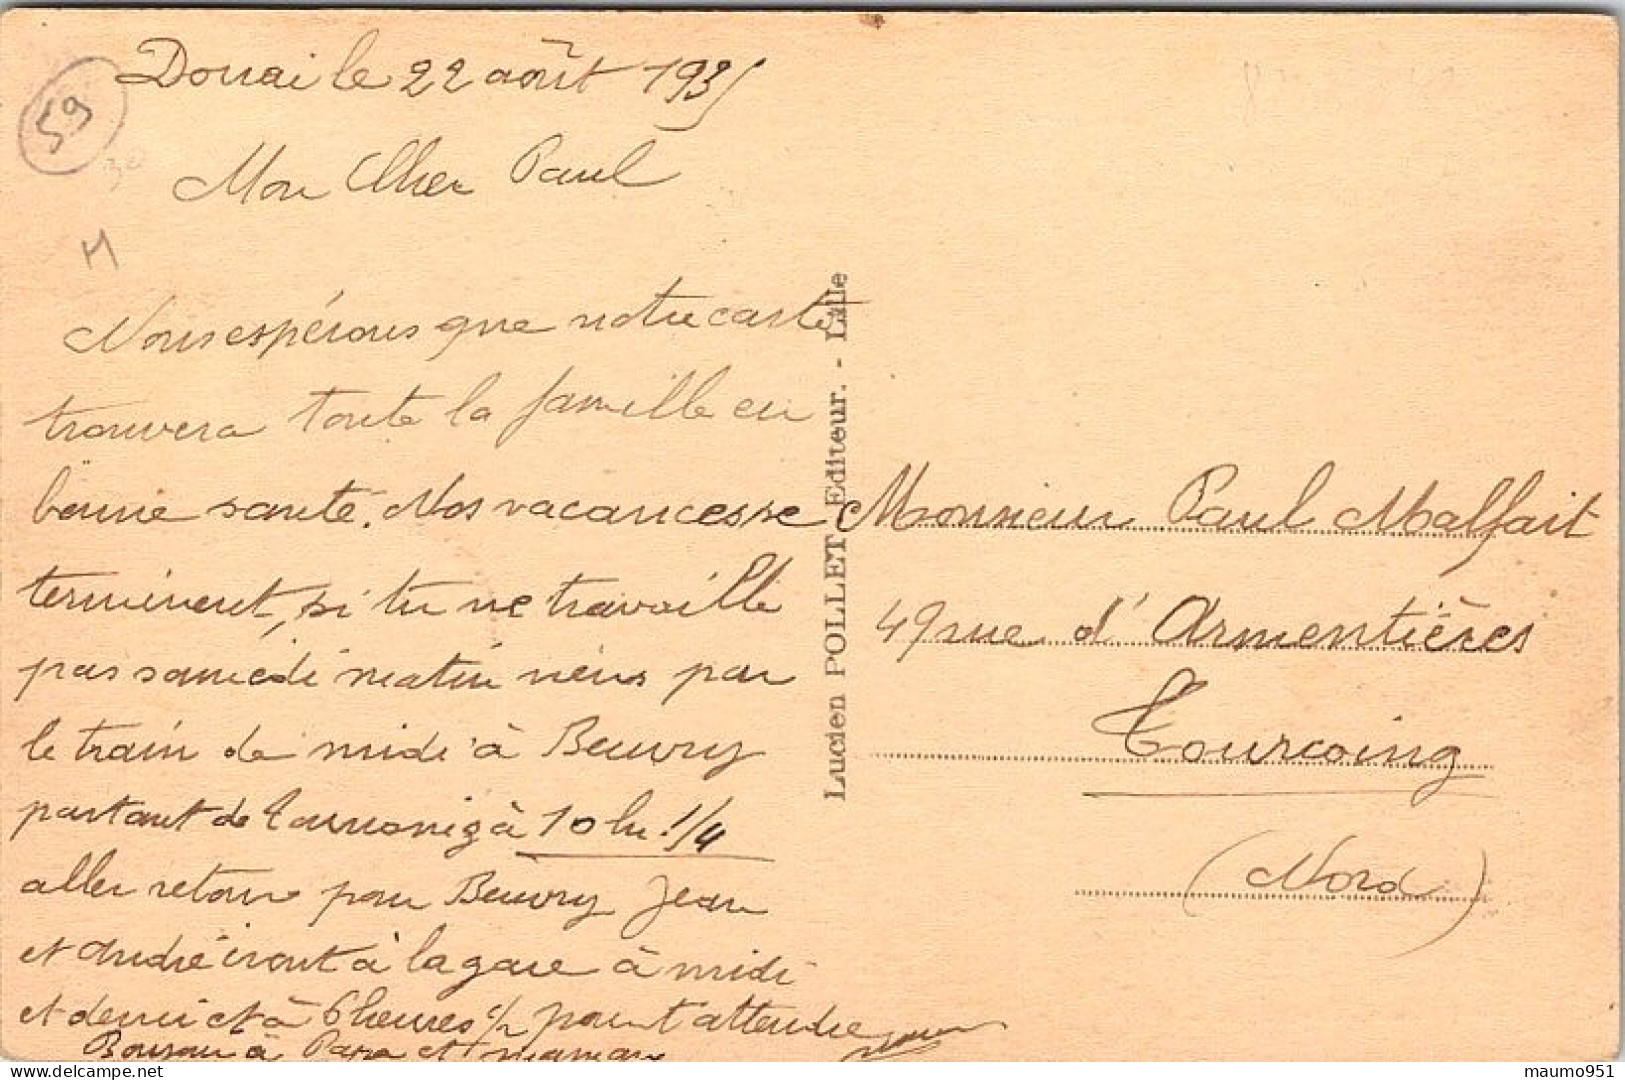 59
30
M
Douai le 22 août 1935
Mon Cher Paul
Nous espérons que notre carte
trouvera toute la famille en
bonne santé. Nos vacances se
terminent, si tu ne travaille
pas samedi matin viens par
le train de midi à Beuvry
partant de Tourcoing à 10 h. 1/4
aller retour pour Beuvry Jean
et André iront à la gare à midi
et demi et à 6 heures 1/2 pour t'attendre
Bonjour à Papa et maman
Lucien POLLET Editeur. - Lille
Monsieur Paul Malfait
49 rue d'Armentières
Tourcoing
(Nord)
delcampe.net
maumo951